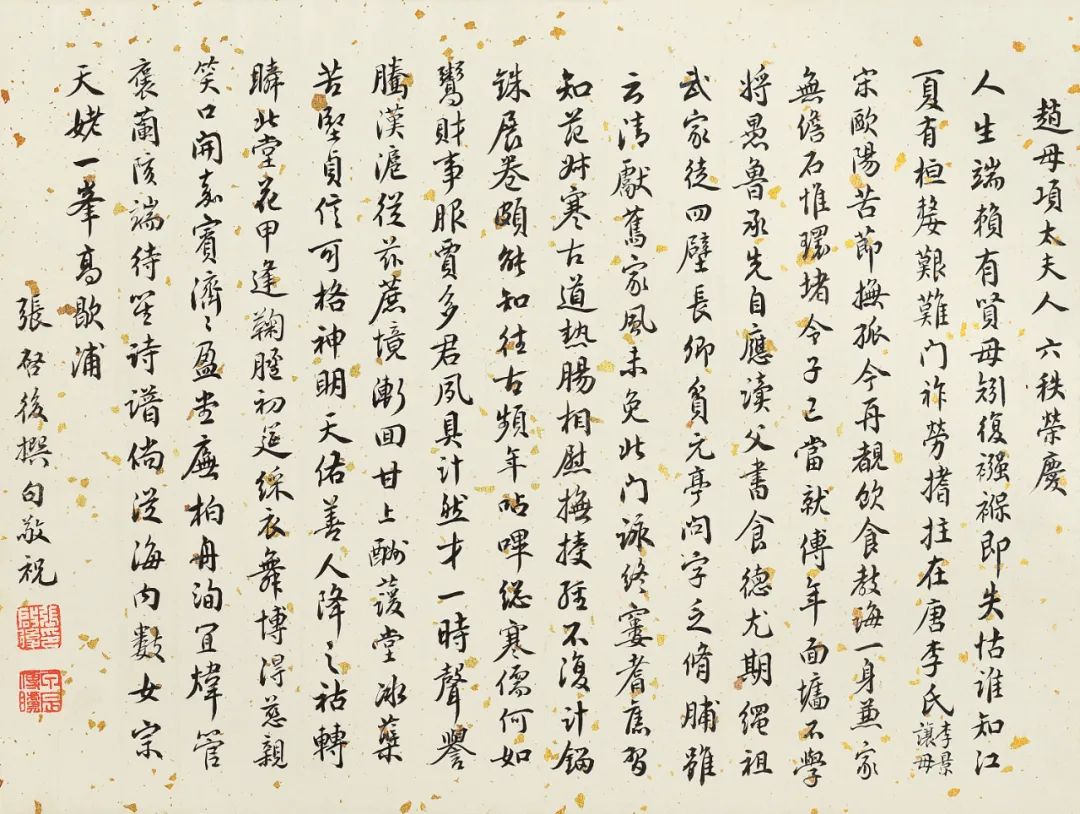 趙母項太夫人六秩榮慶
人生端賴有賢母矧復襁褓即失怙誰知江
夏有桓嫠艱難門祚勞搘拄在唐李氏李景讓母
宋歐陽苦節撫孤今再覩飲食教誨一身兼家
無儋石惟環堵令子已當就傅年面墻不學
將愚魯承先自應讀父書食德尤期繩祖
武家徒四壁長卿貧元亭問字乏脩脯雖
云清獻舊家風未免北門詠終窶耆舊習
知范叔寒古道熱腸相慰撫授經不復計錙
銖展卷頗能知往古頻年呫嗶總寒儒何如
鬻財事服賈多君夙具計然才一時聲譽
騰漢滬從茲蔗境漸回甘上酬蘐堂冰蘗
苦堅貞信可格神明天佑善人降之祜轉
瞬此堂花甲逢鞠初筵綵衣舞博得慈親
笑口開嘉賓濟〻盈堂廡柏舟洵宜煒管
褒蘭陔端待笙詩譜倘從海內數女宗
天姥一峯高歇浦
張啓後撰句敬祝